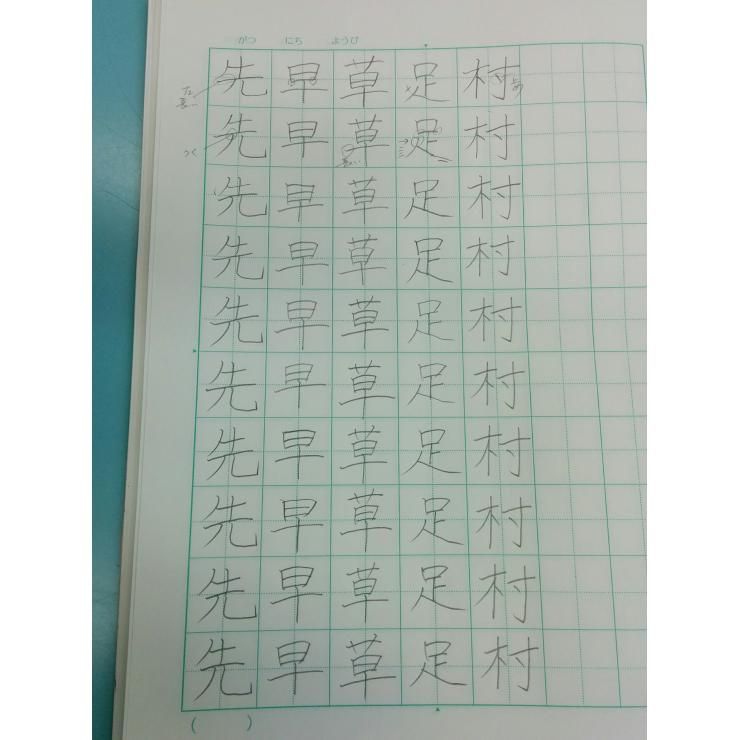 がつ にち ようび
先 早 草 足 村
先 早 草 足 村
先 早 草 足 村
先 早 草 足 村
先 早 草 足 村
先 早 草 足 村
先 早 草 足 村
先 早 草 足 村
先 早 草 足 村
先 早 草 足 村
つく
( )